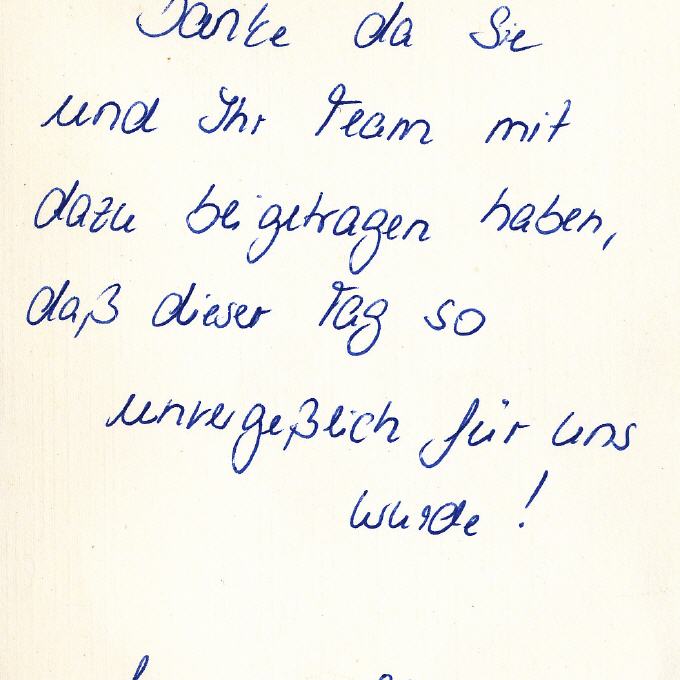 Danke da Sie
und Ihr Team mit
dazu beigetragen haben,
daß dieser Tag so
unvergeßlich für uns
wurde!